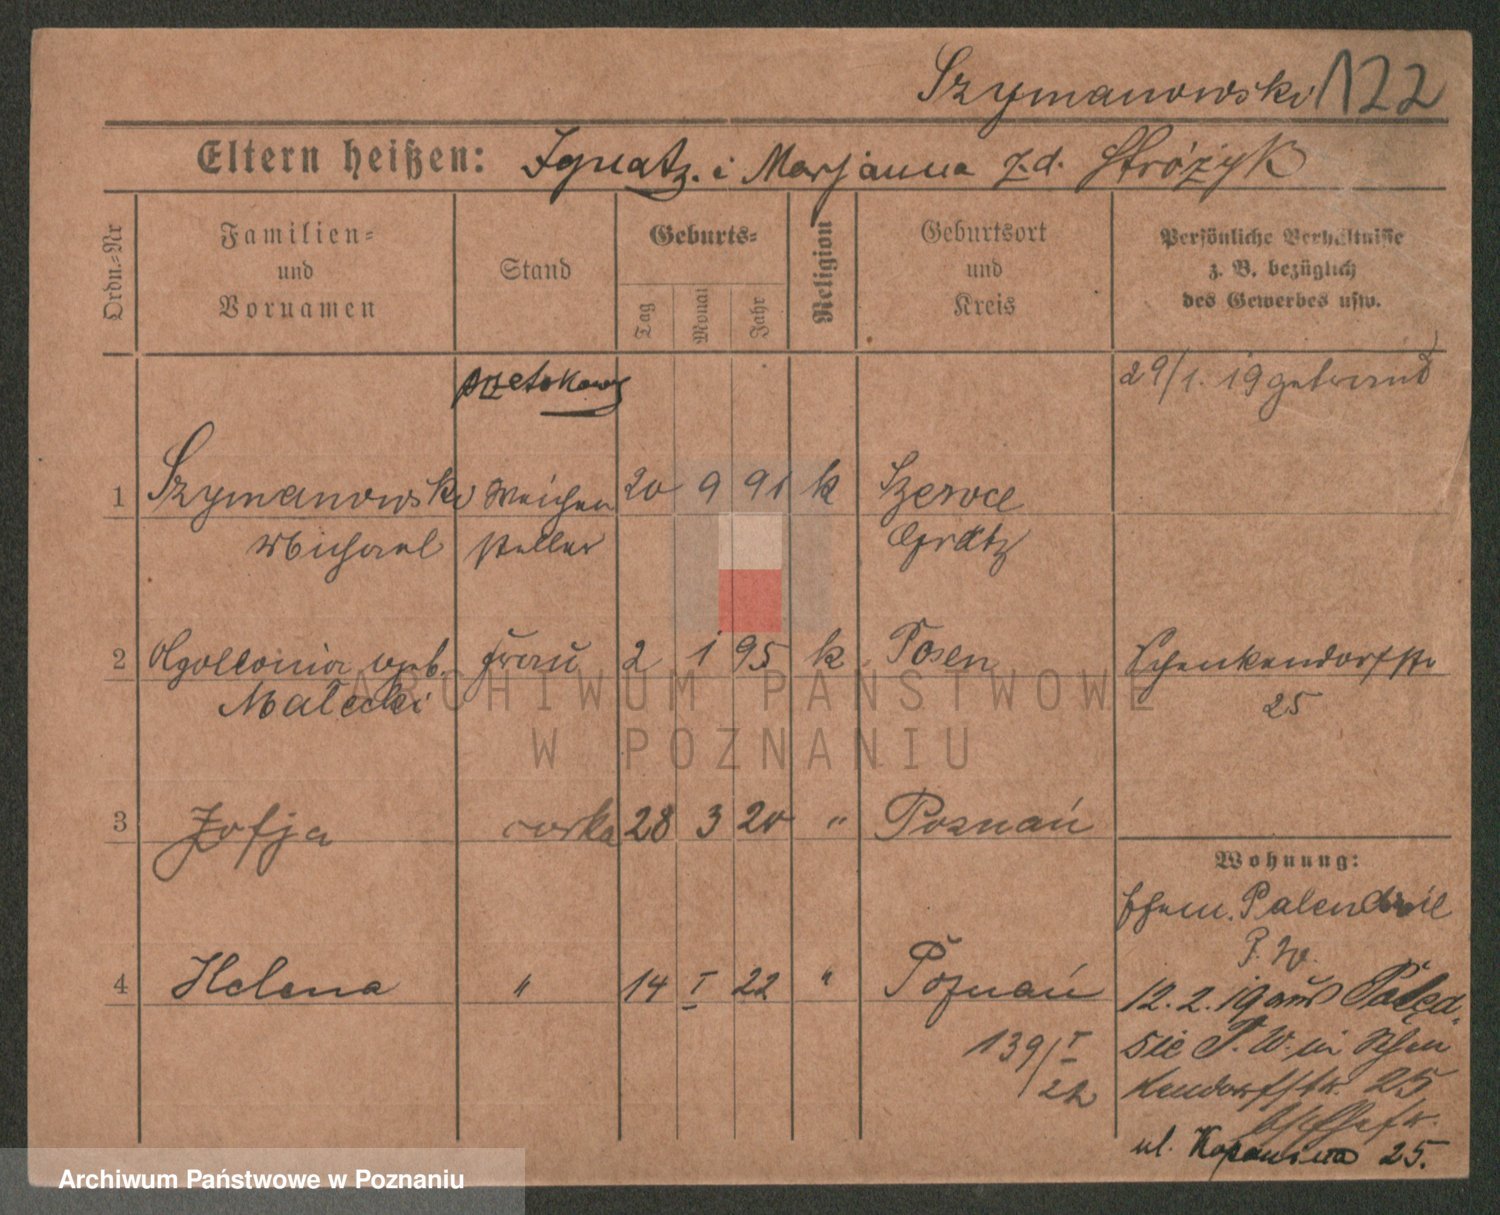 Szymanowski 122
Eltern heißen: Ignatz. i Marjanna z.d. Stróżyk
Ordn.-Nr
Familien-
und
Vornamen
Stand
Geburts-
Tag
Monat
Jahr
Religion
Geburtsort
und
Kreis
Persönliche Verhältnisse
z. B. bezüglich
des Gewerbes usw.
29/1. 19 getraut
1 Szymanowski Weichen 20 9 91 k Szewce
Michael steller Grätz
2 Apollonia geb. Frau 2 1 95 k. Posen Schenkendorfstr
Małecki 25
3 Zofja corka 28 3 20 " Poznań
Wohnung:
P. W.
4 Helena " 14 I 22 " Poznań 12. 2. 19 aus
139/I P. W. in Schen
22 kendorfstr. 25
ul. Kopanina 25.
ARCHIWUM PAŃSTWOWE
W POZNANIU
Archiwum Państwowe w Poznaniu